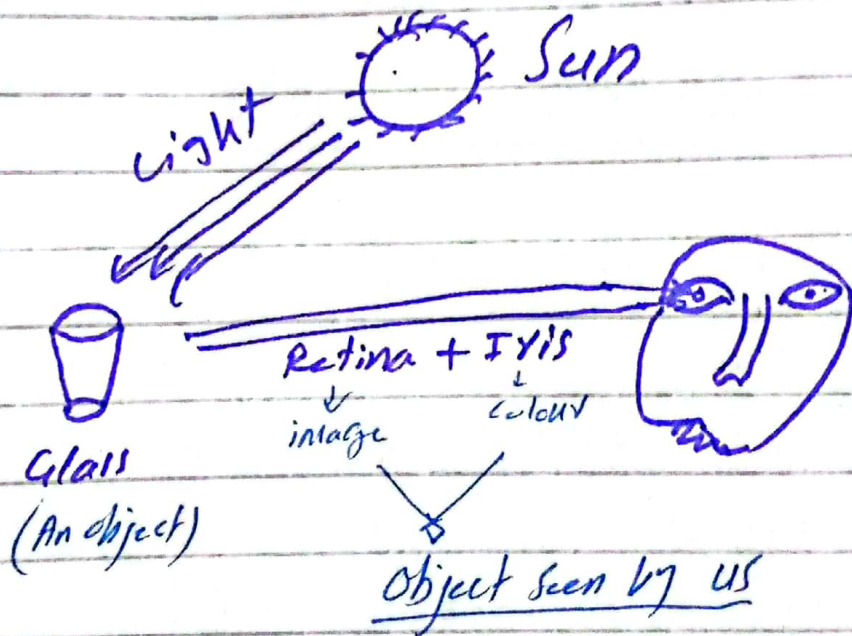 Sun
Light
Retina + Iris
image
colour
Glass
(An object)
Object seen by us